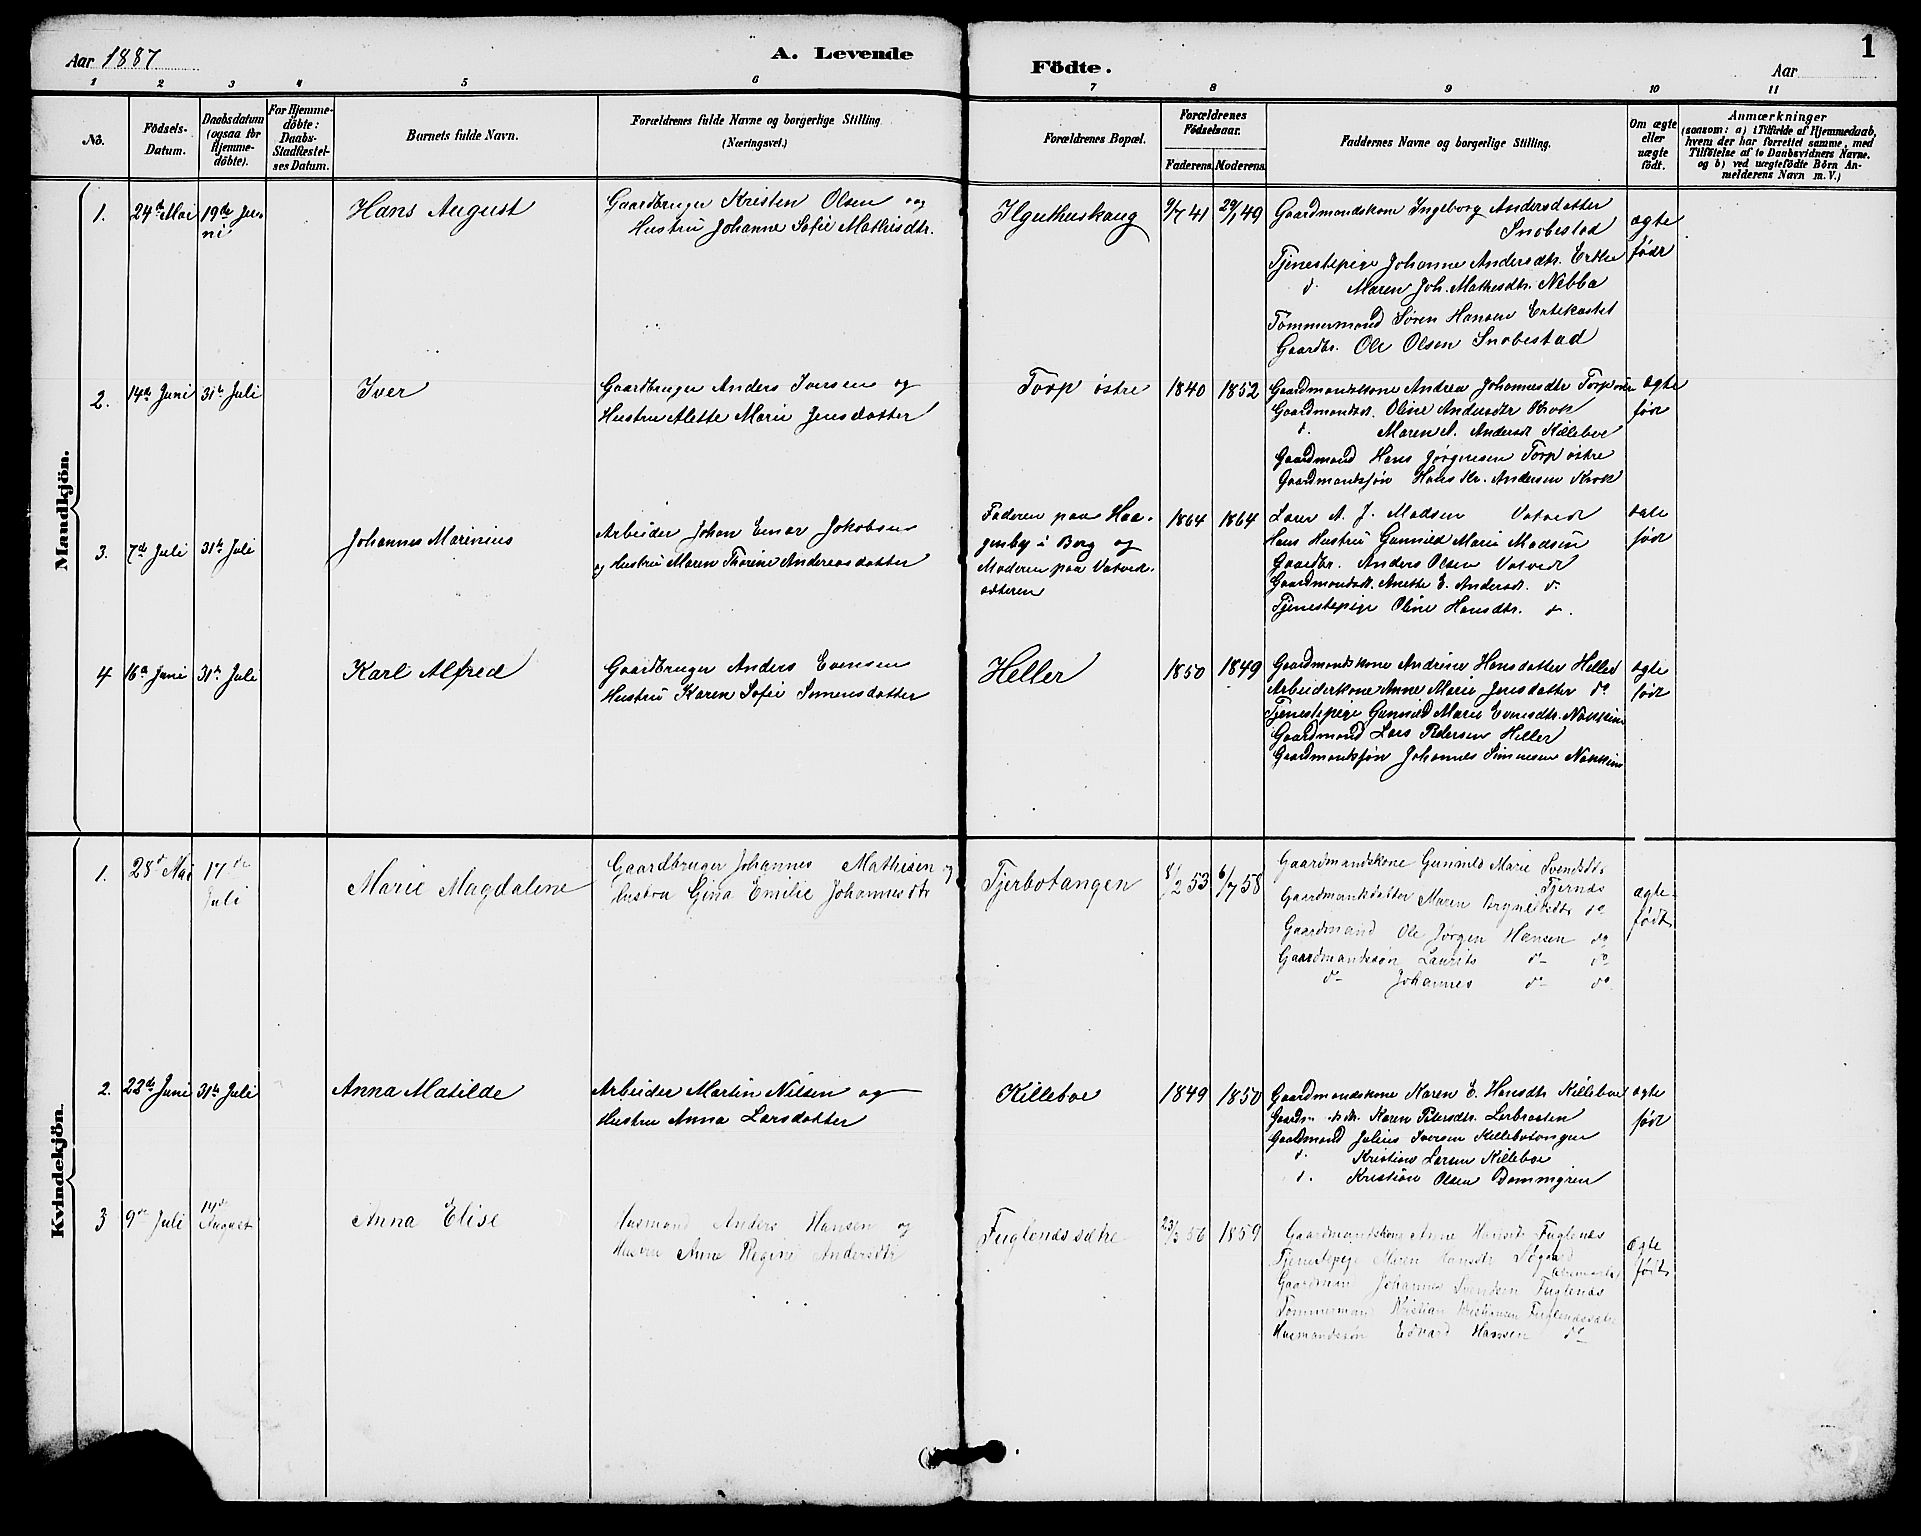 Aar 1887
A. Levende
Födte.
Aar
1
1 2 3 4 5 6 7 8 9 10 11
No.
Födsels-Datum.
Daabsdatum (ogsaa for Hjemme-döbte).
For Hjemme-döbte: Daabs-Stadfæstel-ses Datum.
Barnets fulde Navn.
Forældrenes fulde Navne og borgerlige Stilling (Næringsvei.)
Forældrenes Bopæl.
Forældrenes Födselsaar.
Faderens Moderens
Faddernes Navne og borgerlige Stilling.
Om ægte eller uægte födt.
Anmærkninger
(saasom: a) i Tilfælde af Hjemmedaab,
hvem der har forrettet samme, med
Tilföielse af to Daabsvidners Navne.
og b) ved uægtefödte Börn An-
melderens Navn m. V.)
Mandkjön.
1. 24de Mai 19de Ju-
ni
Hans August
Gaardbruger Kristen Olsen og
Hustru Johanne Sofie Mathisdtr.
9/7 41 29/1 49
Gaardmandskone Ingeborg Andersdatter
Snobestad
Tjenestepige Johanne Andersdtr.
d. Maren Joh. Mathisdtr. Nebba
Tømmermand Søren Hansen
Gaardbr. Ole Olsen Snobestad
ægte
født
2. 14de Juni 31te Juli
Iver
Gaardbruger Anders Iversen og
Hustru Alette Marie Jensdatter
Torp østre
1840 1852
Gaardmandskone Andrea Johannesdtr Torp østre
Gaardmandsdt. Oline Andersdtr Krok
d. Maren A. Andersdt Killeboe
Gaardmand Hans Jørgensen Torp østre
Gaardmandssøn Hans Kr. Andersen Krok
ægte
født
3. 7de Juli 31te Juli
Johannes Marinius
Arbeider Johan Emar Jakobsen
og Hustru Maren Thorine Andreasdatter
Faderen paa Haa-
genby i Borg og
Moderen paa Vatved-
østeren
1864 1864
Lærer A. J. Madsen Vatved
Hans Hustru Gunnild Marie Madsen
Gaardbr. Anders Olsen Vatved
Gaardmandsdt. Anette E. Andersdt. d.
Tjenestepige Oline Hansdtr. d.
ægte
født
4 16de Juni 31te Juli
Karl Alfred
Gaardbruger Anders Evensen
Hustru Karen Sofie Simensdatter
Heller
1850 1849
Gaardmandskone Andrine Hansdatter Heller
Arbeiderkone Anne Marie Jensdatter do
Tjenestepige Gunnild Marie Evensdtr.
Gaardmand Lars Pedersen Heller
Gaardmandssøn Johannes Simensen
ægte
født
Kvindekjön.
1. 28de Mai 17de
Juli
Marie Magdalene
Gaardbruger Johannes Mathisen og
Hustru Gina Emilie Johannesdtr
Tjerbotangen
8/2 53 6/7 58
Gaardmandskone Gunnild Marie Svendsdtr
Tjernes
Gaardmandsdatter Maren Brynildsdtr do
Gaardmand Ole Jørgen Hansen do
Gaardmandssøn Laurits do do
do Johannes do do
ægte-
født
2. 22de Juni 31te Juli
Anna Matilde
Arbeider Martin Nilsen og
Hustru Anna Larsdatter
Killeboe
1849 1850
Gaardmandskone Karen E. Hansdtr Killeboe
Karen Petersdtr. Lerbraaten
Gaardmand Julius Iversen Killebotangen
d. Kristian Larsen Killeboe
d. Kristian Olsen
ægte
født
3 9de Juli 14de
August
Anna Elise
Husmand Anders Hansen og
Hustru Anne Regine Andersdtr
Fuglenessætre
23/3 56 1859
Gaardmandskone Anne Hansdt Fuglenes
Tjenestepige Maren Hansdtr Søgaard
Gaardmand Johannes Svendsen Fuglenes
Tømmermand Kristian Kristiansen
Husmandssøn Edvard Hansen do
Ægte
født